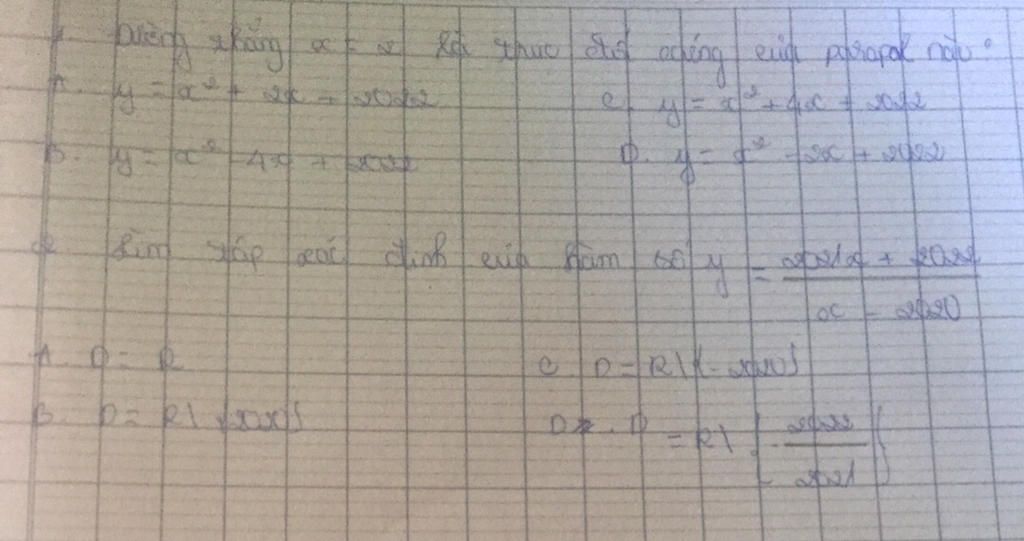 1. Đường thẳng x = 2 là trục đối xứng của parapol nào?
A. y = x² + 2x + 2022 C. y = x² + 4x + 2022
B. y = x² - 4x + 2022 D. y = x² - 2x + 2022
2. Tìm tập xác định của hàm số y = (2021x + 2022)/(x - 2020)
A. D = R C. D = R\{-2020}
B. D = R\{2020} D. D = R\{-2022/2021}